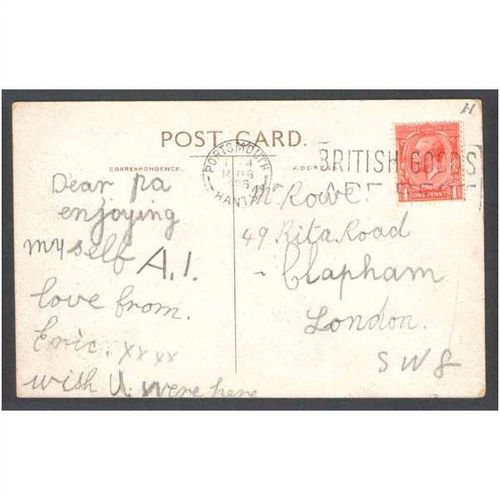 POST CARD.
CORRESPONDENCE.
Dear pa
enjoying
myself A.1.
love from.
Eric. xxxx
wish U. were here
PORTSMOUTH
HANTS
BRITISH GOODS
ARE BEST
ONE PENNY
Mr Rowe.
49 Rita Road
Clapham
London.
SW8